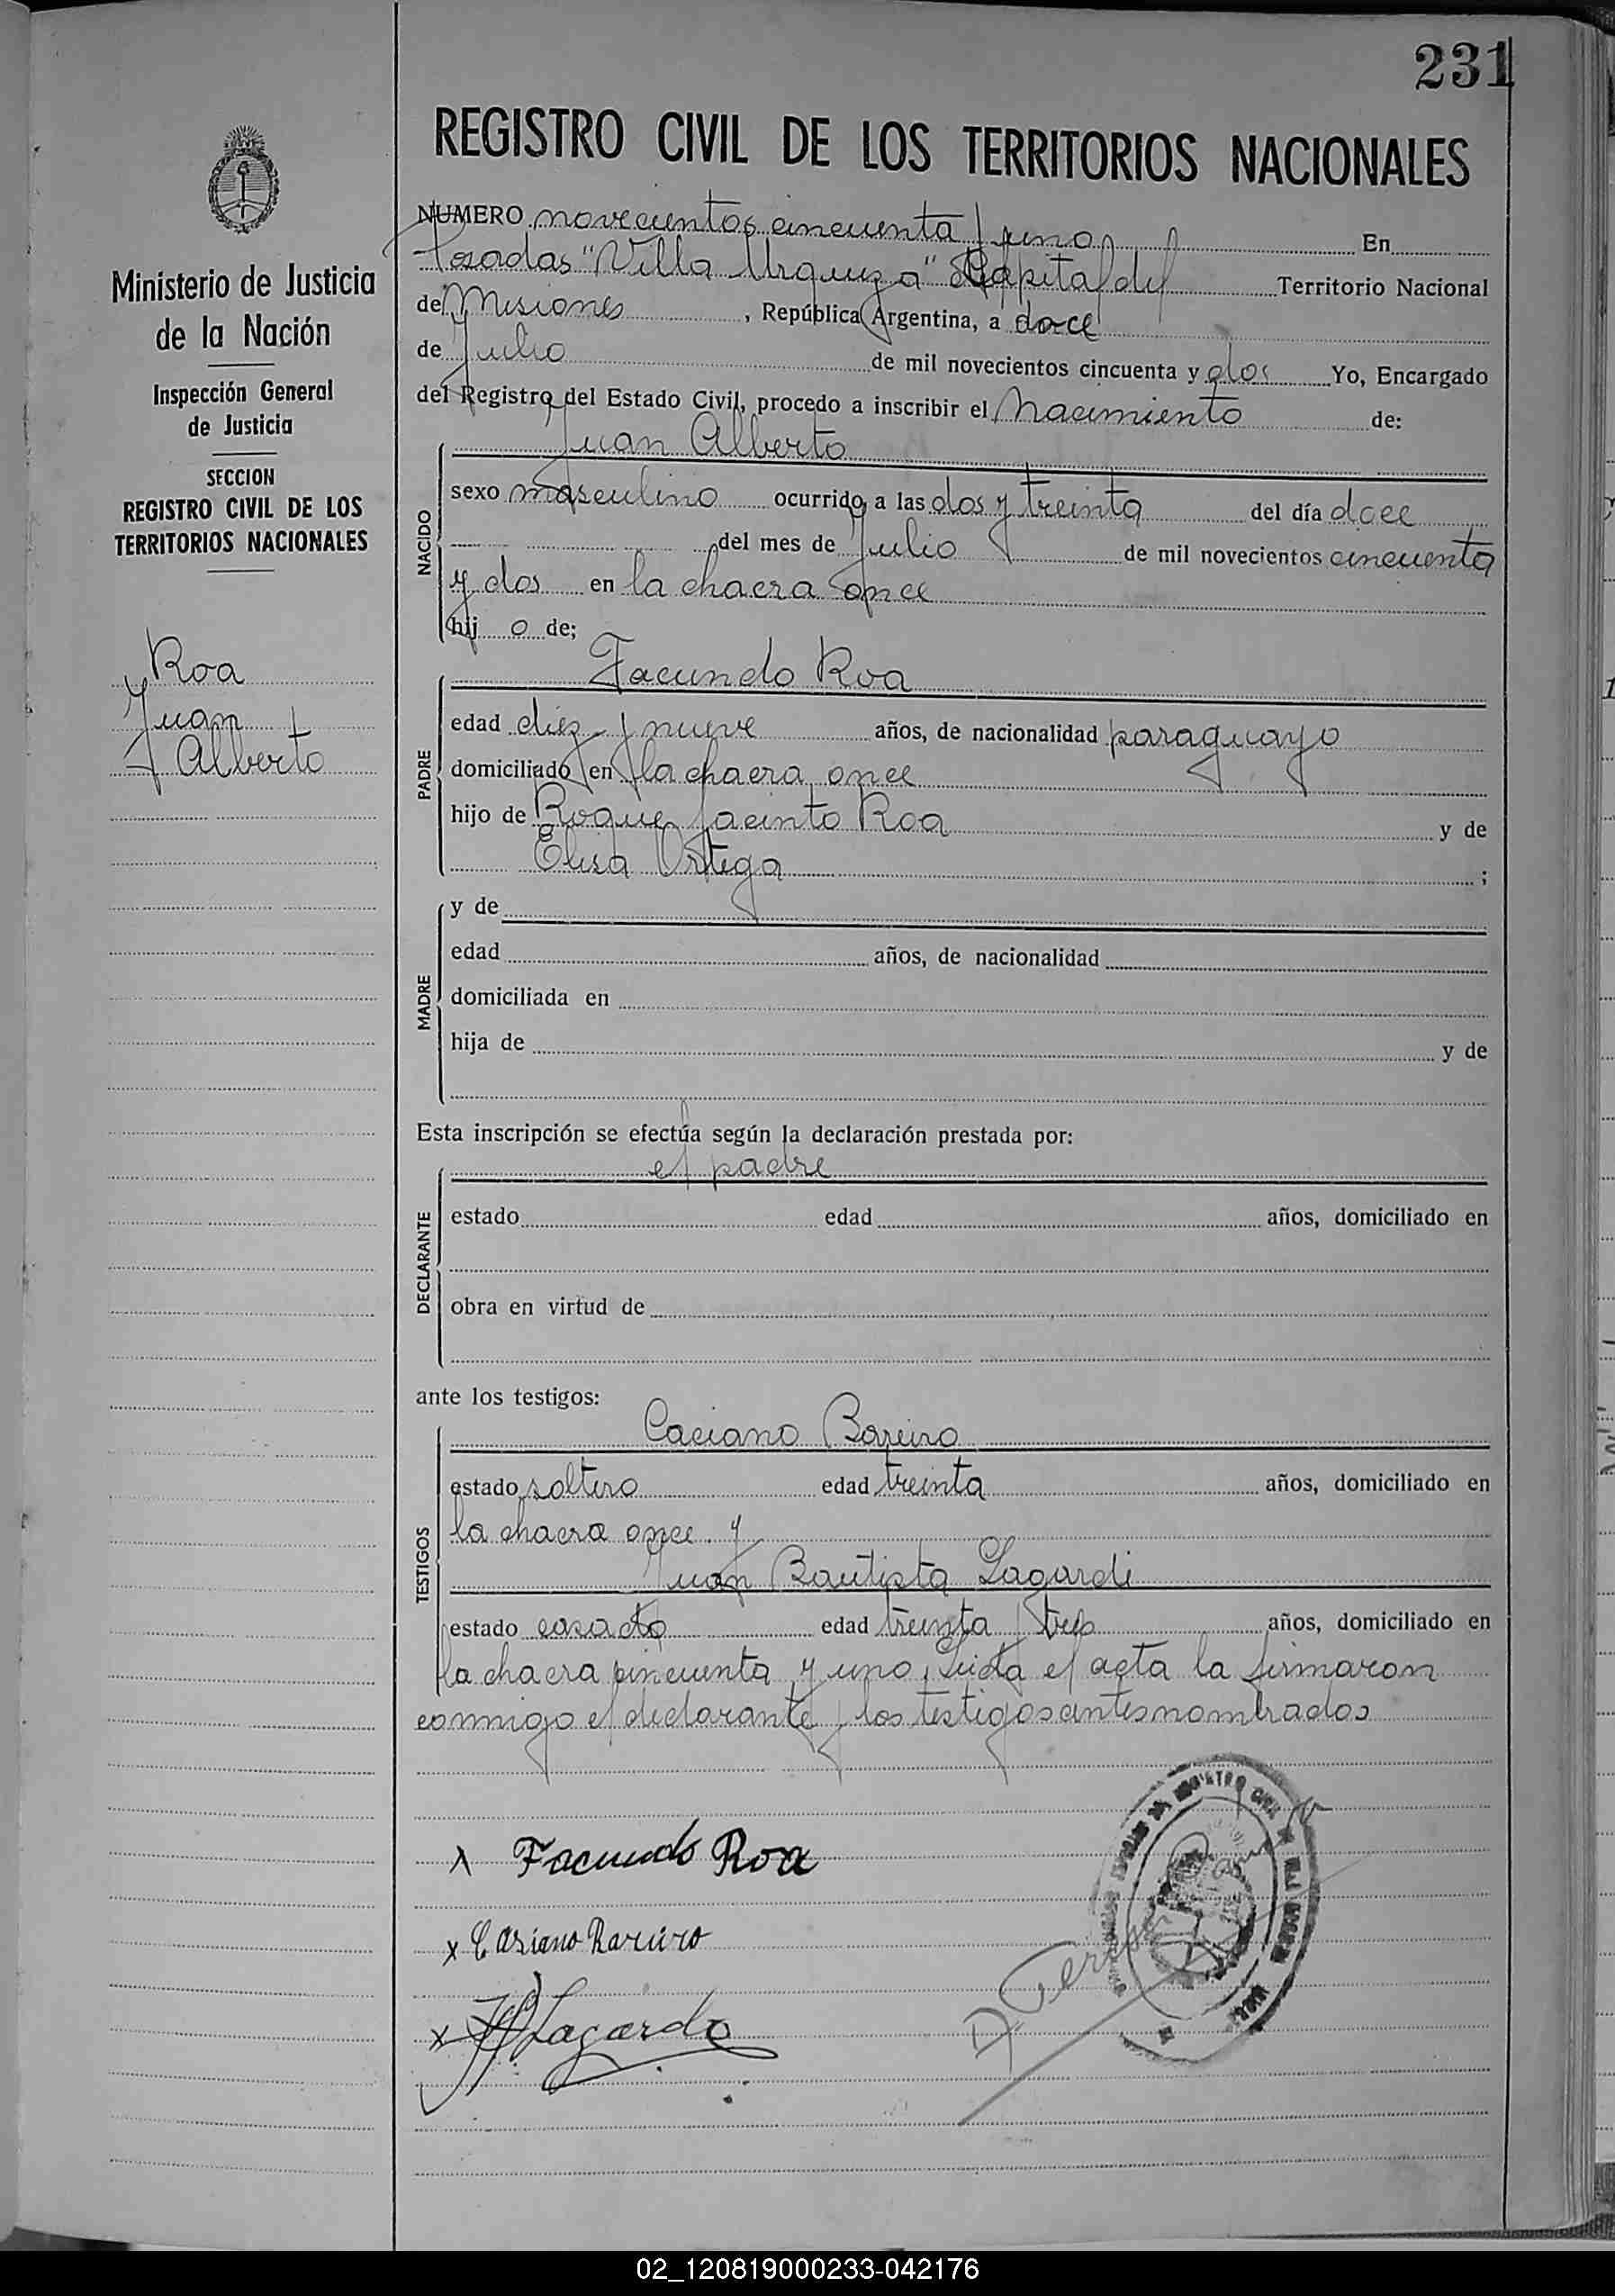 231
REGISTRO CIVIL DE LOS TERRITORIOS NACIONALES
Ministerio de Justicia
de la Nación
Inspección General
de Justicia
SECCION
REGISTRO CIVIL DE LOS
TERRITORIOS NACIONALES
Roa
Juan
Alberto
NUMERO novecientos cincuenta y uno En
Posadas "Villa Urquiza" Capital del Territorio Nacional
de Misiones, República Argentina, a doce
de Julio de mil novecientos cincuenta y dos Yo, Encargado
del Registro del Estado Civil, procedo a inscribir el Nacimiento de:
NACIDO
Juan Alberto
sexo masculino ocurrido a las dos y treinta del día doce
del mes de Julio de mil novecientos cincuenta
y dos en la chacra once
hij o de;
PADRE
Facundo Roa
edad diez y nueve años, de nacionalidad paraguayo
domiciliado en la chacra once
hijo de Roque Jacinto Roa y de
Elisa Ortega ;
MADRE
y de
edad años, de nacionalidad
domiciliada en
hija de y de
Esta inscripción se efectúa según la declaración prestada por:
DECLARANTE
el padre
estado edad años, domiciliado en
obra en virtud de
ante los testigos:
TESTIGOS
Caciano Bareiro
estado soltero edad treinta años, domiciliado en
la chacra once y
Juan Bautista Lagardi
estado casado edad treinta y tres años, domiciliado en
la chacra cincuenta y uno, Leida el acta la firmaron
conmigo el declarante y los testigos antes nombrados
x Facundo Roa
x Casiano Bareiro
x Lagardo
02_120819000233-042176